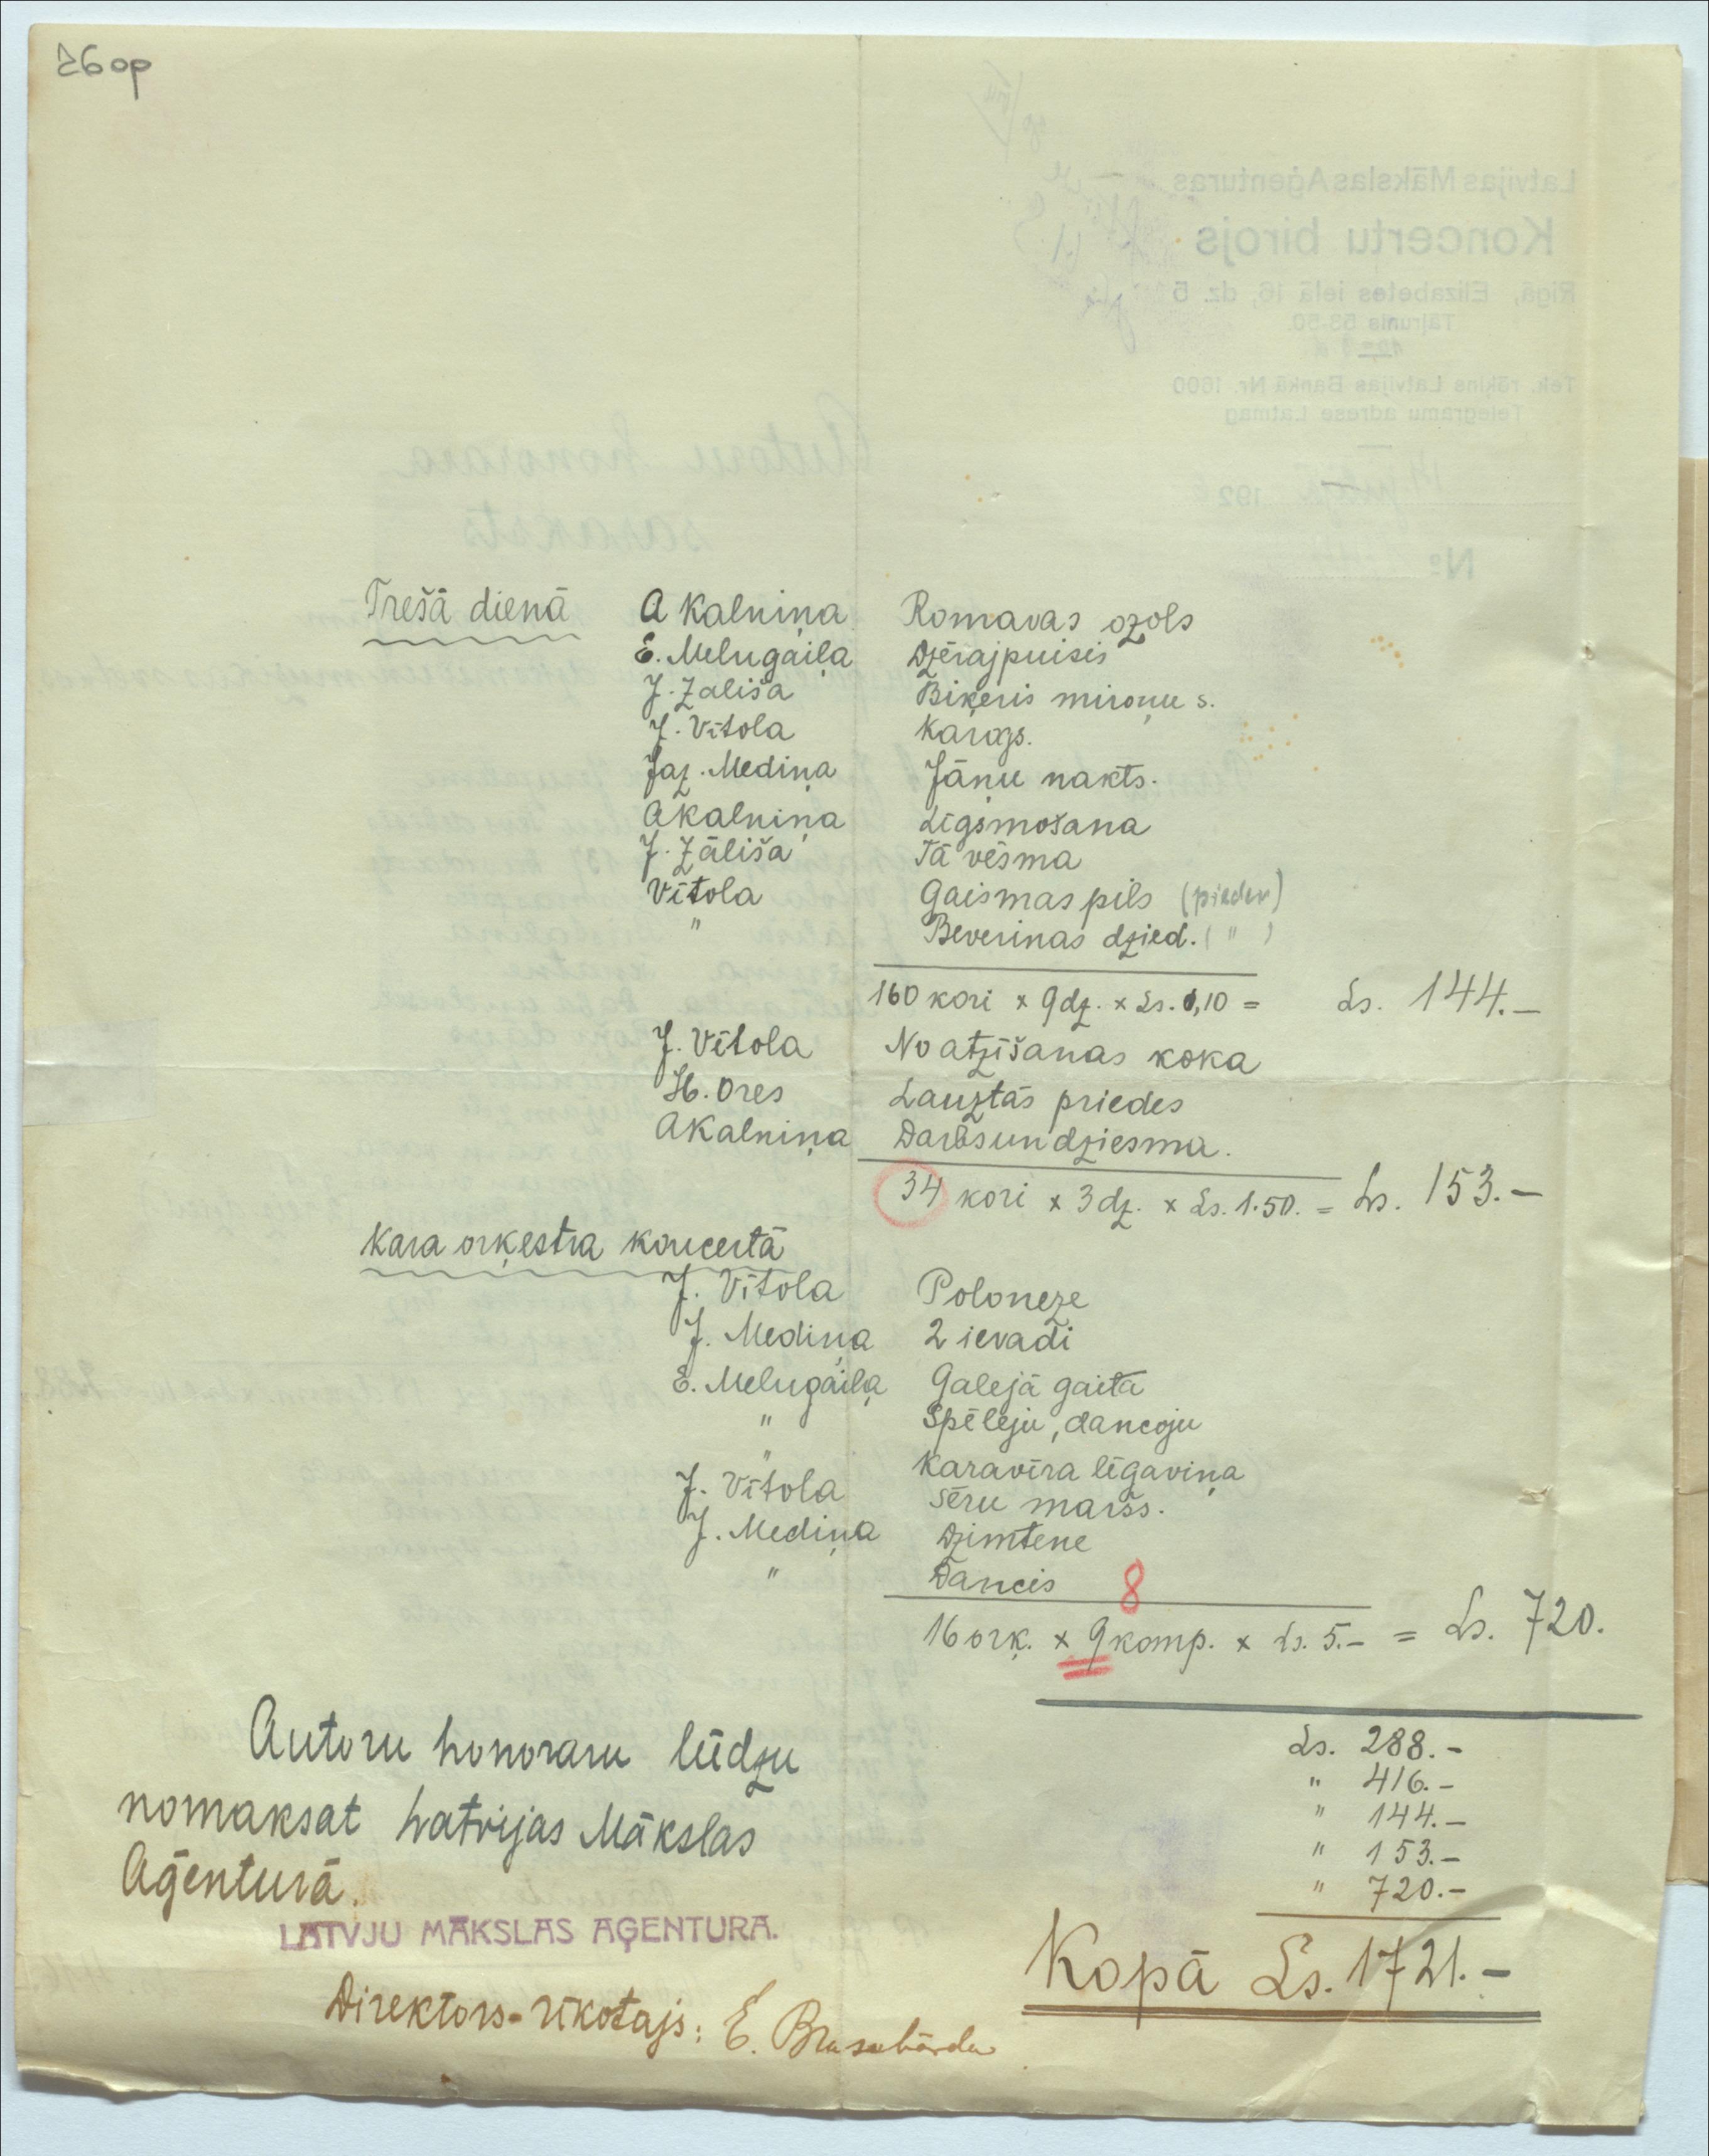 26 op
Trešā dienā A Kalniņa Romavas ozols
E. Melngaiļa Dzērajpuisis
J. Zališa Biķeris miroņu s.
J. Vītola Karogs.
Jāz. Mediņa Jāņu nakts.
A Kalniņa Līgsmošana
J. Zāliša Tā vēsma
Vītola Gaismas pils (pieder)
" Beverinas dzied. ( " )
160 kori x 9 dz. x Ls. 0,10 = Ls. 144.—
J. Vītola No atzīšanas koka
H. Ores Lauztās priedes
A Kalniņa Darbs un dziesma.
34 kori x 3 dz. x Ls. 1.50. = Ls. 153.—
Kara orķestra koncertā
J. Vītola Poloneze
J. Mediņa 2 ievadi
E. Melngaiļa Galejā gaita
" Spēleju, dancoju
" Karavīra līgaviņa
J. Vītola Sēru maršs.
J. Mediņa Dzimtene
" Dancis 8
16 orķ. x 9 komp. x Ls. 5.— = Ls. 720.
Autoru honoraru lūdzu
nomaksat Latvijas Mākslas
Aģenturā.
LATVJU MĀKSLAS AĢENTURA.
Direktors-rīkotajs:
Ls. 288.—
" 416.—
" 144.—
" 153.—
" 720.—
Kopā Ls. 1721.—
Latvijas Mākslas Aģenturas
Koncertu birojs
Rīgā, Elizabetes ielā 16, dz. 5
Tālrunis 53-50
Tek. rēķins Latvijas Bankā Nr. 1600
Telegramu adrese Latmag
192
№
Autoru honoraru
saraksts